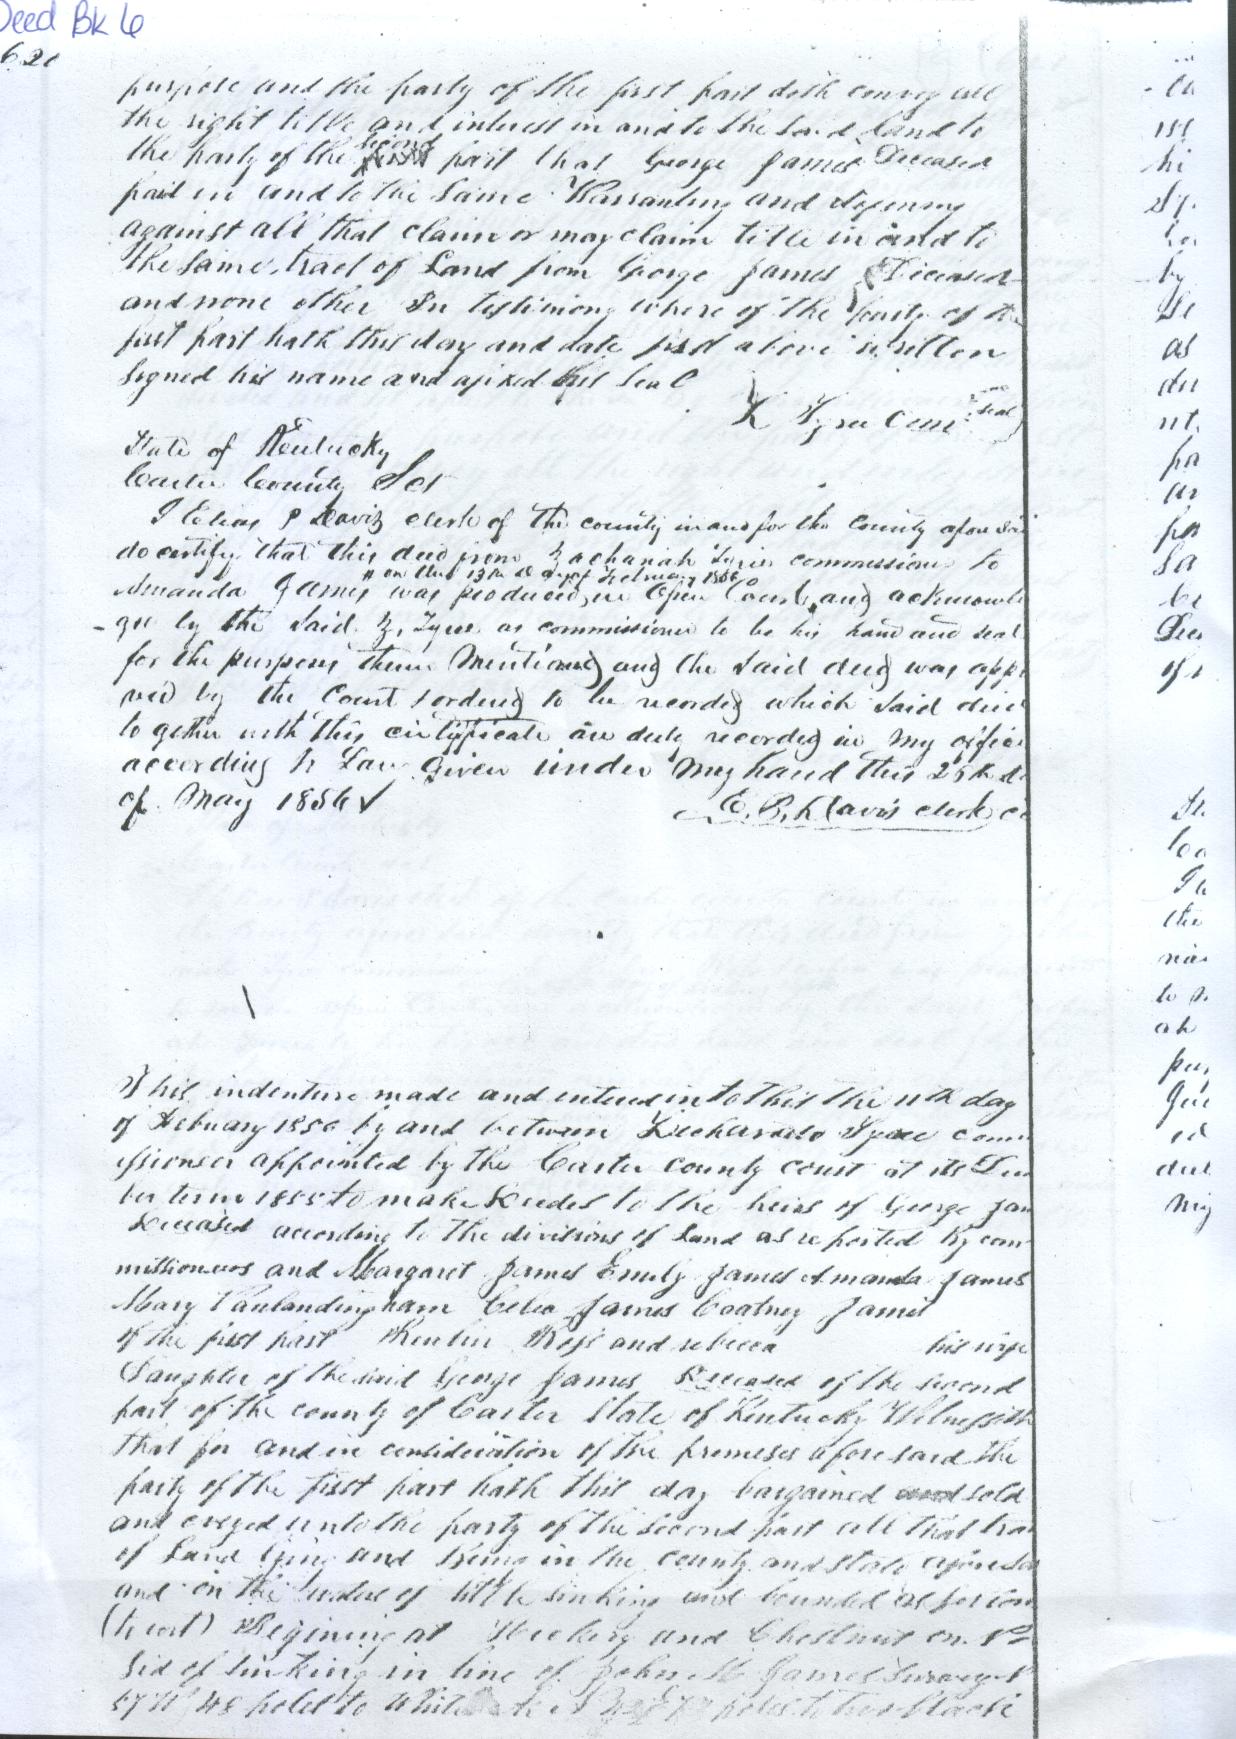 Deed Bk 6
620
purpose and the party of the first part doth convey all
the right title and interest in and to the said Land to
the party of the second part that George James Deceased
had in and to the same Warranting and defening
against all that claim or may claim title in and to
the same tract of Land from George James Deceased
and none other In testimony where of the party of the
first part hath this day and date first above written
signed his name and afixed his seal
Z Tyree Com seal
State of Kentucky
Carter County Sct
I Elias P Davis clerk of the county in and for the County afore sai
do certify that this deed from Zachariah Tyree commissioner to
on the 13th Day of February 1856
Amanda James was produced in Open Court and acknowle
ge by the said Z. Tyree as commissioner to be his hand and seal
for the purposes therein Mentioned and the said deed was appr
ved by the Court & ordered to be recorded which said deed
to gether with this certificate are duly recorded in my office
according to Law Given under my hand this 28th d
of May 1856
E. P. Davis clerk
This indenture made and entered in to this the 11th day
of February 1856 by and between Zechariah Tyree comm
issioner appointed by the Carter county court at its Dec
ber term 1855 to make Deedes to the heirs of George Jam
Deceased according to the divisions of Land as reported by com
missioners and Margaret James Emily James Amanda James
Mary Vanlandingham Celia James Coatney James
of the first part Reubin Rose and rebecca his wife
Daughter of the said George James Deceased of the second
part of the county of Carter State of Kentucky Witnesseth
that for and in consideration of the premeses afore said the
party of the first part hath this day bargained and sold
and coveyed unto the party of the second part all that trac
of Land lying and being in the county and state afore sa
and on the waters of little sinking and bounded as follow
(to wit) Begining at Hickory and Chestnut on
Sid of sinking in line of John M James survey
48 poles to White poles to two Black